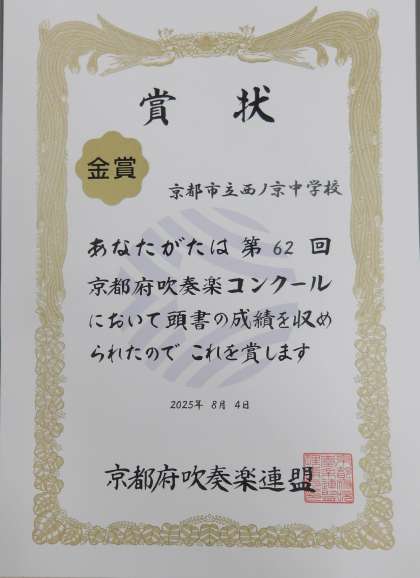 賞状
金賞
京都市立西ノ京中学校
あなたがたは 第 62 回
京都府吹奏楽コンクール
において頭書の成績を収め
られたので これを賞します
2025年 8月 4日
京都府吹奏楽連盟